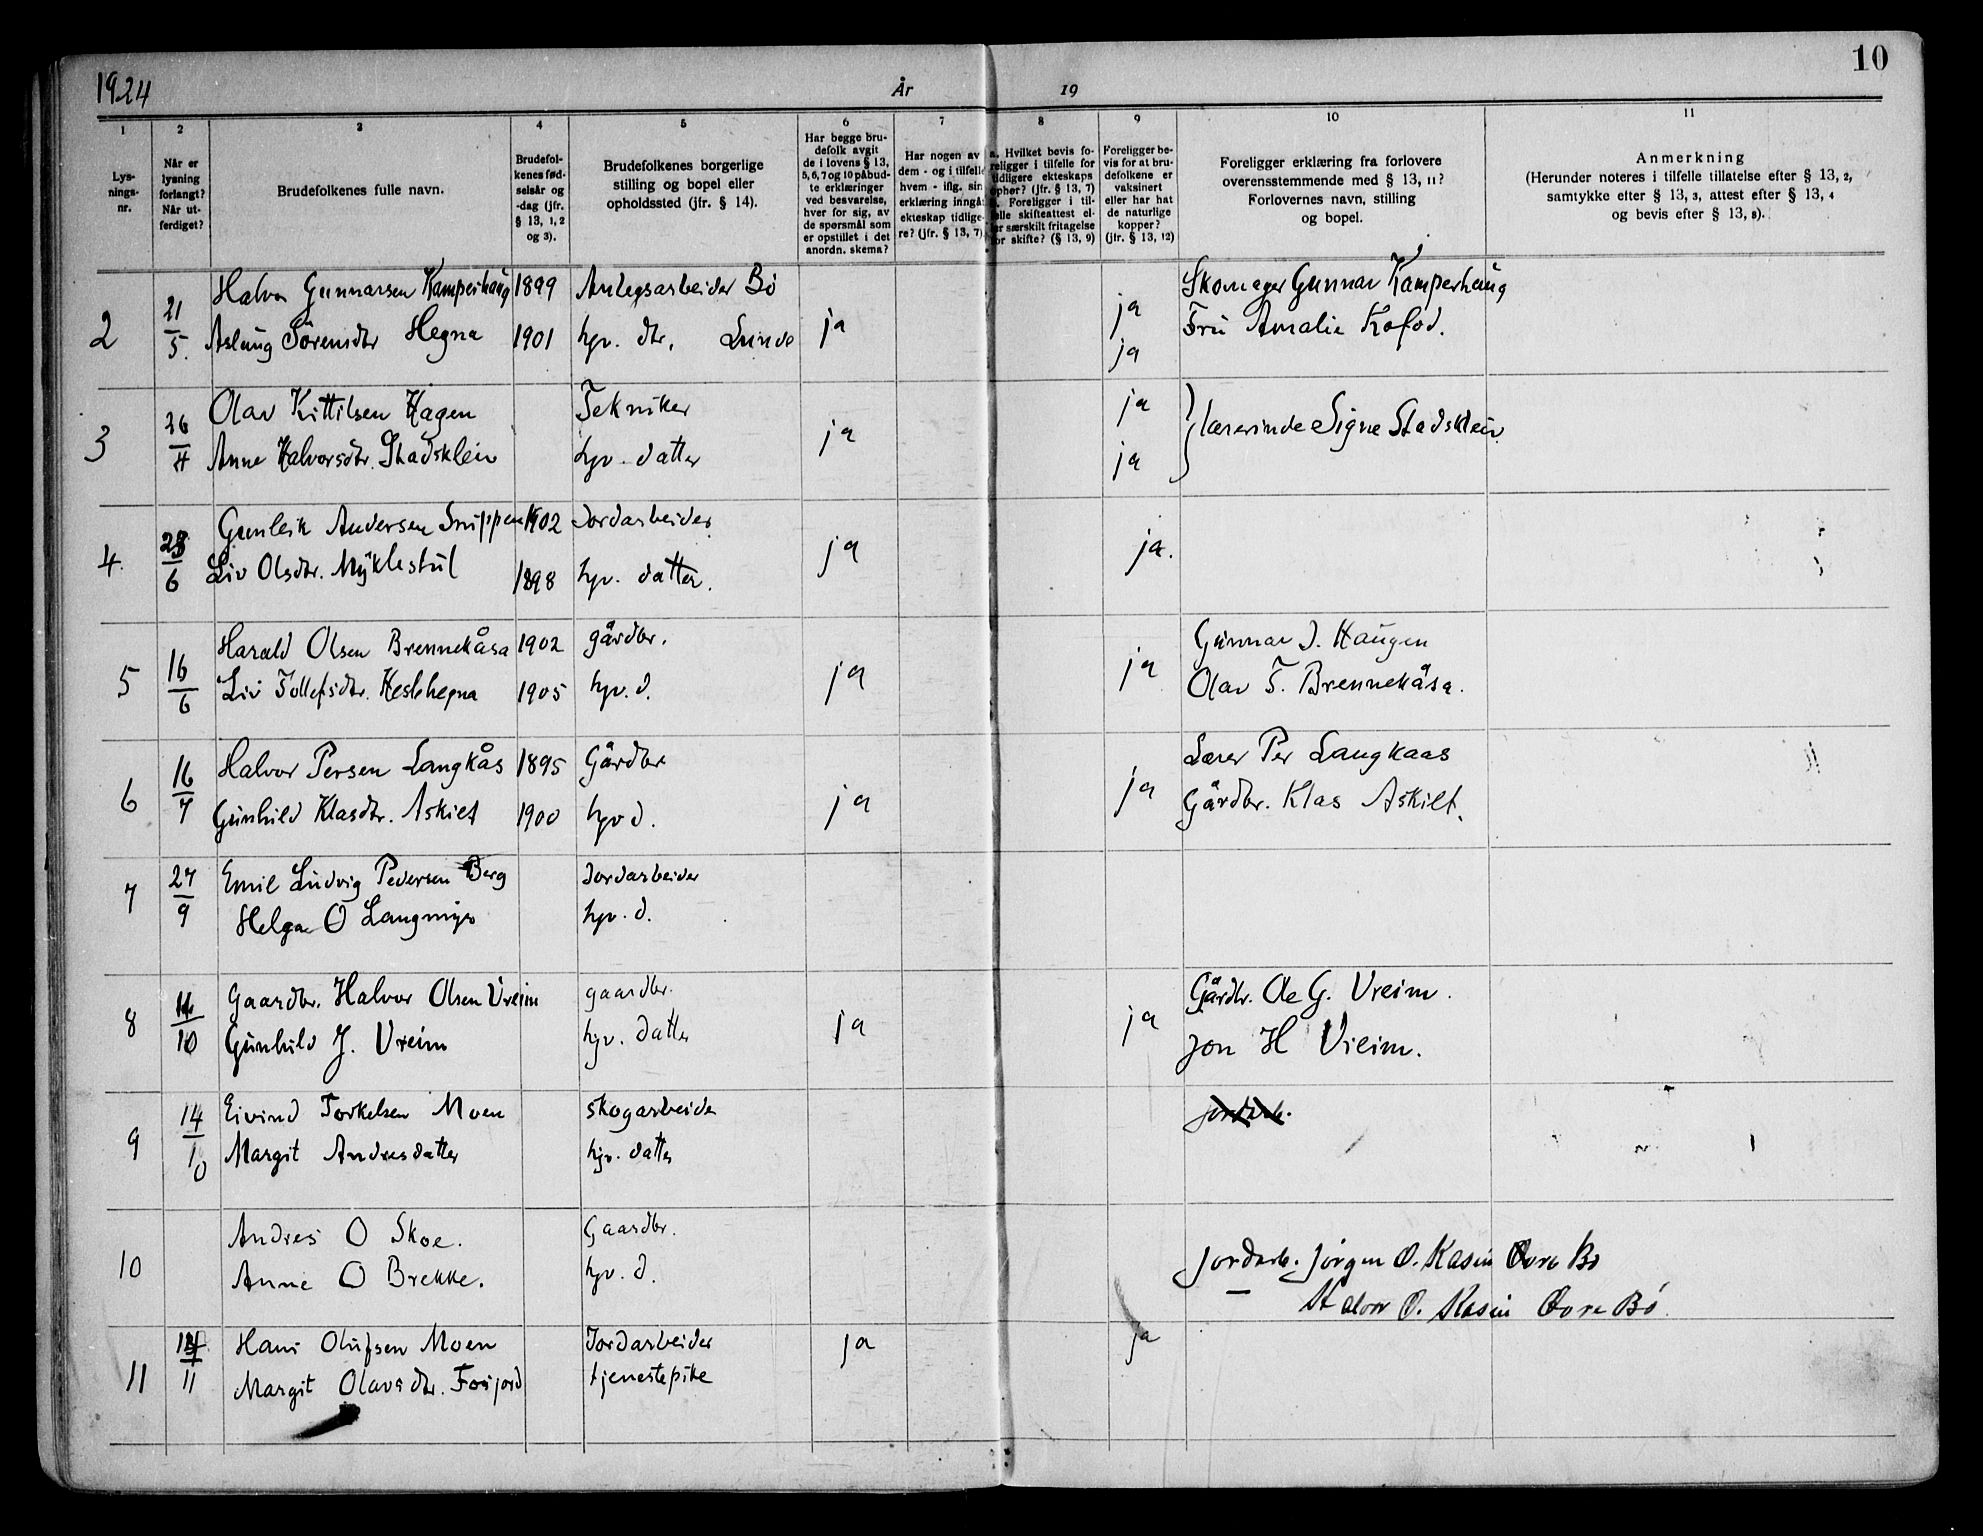 1924 År 19 10
1 2 3 4 5 6 7 8 9 10 11
Lys-
nings-
nr.
Når er
lysning
forlangt?
Når ut-
ferdiget?
Brudefolkenes fulle navn.
Brudefol-
kenes fød-
selsår og
-dag (jfr.
§ 13, 1, 2
og 3).
Brudefolkenes borgerlige
stilling og bopel eller
opholdssted (jfr. § 14).
Har begge bru-
defolk avgit
de i lovens § 13,
5, 6, 7 og 10 påbud-
te erklæringer
ved besvarelse,
hver for sig, av
de spørsmål som
er opstillet i det
anordn. skema?
Har nogen av
dem - og i tilfelle
hvem - iflg. sin
erklæring inngå
ekteskap tidlige-
re? (jfr. § 13, 7)
a. Hvilket bevis fo-
religger i tilfelle for
tidligere ekteskaps
ophør? (jfr. § 13, 7)
Foreligger i til-
elle skifteattest el-
er særskilt fritagelse
for skifte? (§ 13, 9)
Foreligger be-
vis for at bru-
defolkene er
vaksinert
eller har hat
de naturlige
kopper?
(jfr. § 13, 12)
Foreligger erklæring fra forlovere
overensstemmende med § 13, 11?
Forlovernes navn, stilling
og bopel.
Anmerkning
(Herunder noteres i tilfelle tillatelse efter § 13, 2,
samtykke efter § 13, 3, attest efter § 13, 4
og bevis efter § 13, 8).
2 21/5. Halvor Gunnarsen Kamperhaug 1899 Anlegsarbeider Bø ja ja Skomager Gunnar Kamperhaug
Aslaug Sørensdtr Hegna 1901 hpv. dtr. Lunde ja Fru Amalie Kofod.
3 26/4 Olav Kittilsen Hagen Tekniker ja ja lærerinde Signe Stadskleiv
Anne Halvorsdtr. Stadskleiv hpv. datter ja
4. 28/6 Gunleik Andersen Snippen 1902 Jordarbeider ja ja.
Liv Olsdtr. Myklestul 1898 hpv. datter.
5 16/6 Harald Olsen Brennekåsa 1902 gårdbr. ja ja Gunnar J. Haugen
Liv Tollefsdtr. Heslehegna 1905 hpv. d. Olav T. Brennekåsa.
6 16/7 Halvor Persen Langkås 1895 Gårdbr ja ja Lærer Per Langkaas
Gunhild Klasdtr. Askilt 1900 hpv d. Gårdbr. Klas Askilt.
7 27/9 Emil Ludvig Pedersen Berg Jordarbeider
Helga O Langmyr hpv. d.
8 10 Gaardbr. Halvor Olsen Vreim gaardbr. ja ja Gårdbr. Ole G. Vreim.
Gunhild J. Vreim hpv. datter Jon H Vreim.
9 14/10 Eivind Torkelsen Moen skogarbeider jordarb.
Margit Andresdatter hpv. datter
10 Andres O Skoe. Gaardbr.
Anne O Brekke. hpv. d. jordarb. Jörgen O. Kasin Øvre Bø
Halvor O. Kasin Øvre Bø.
11 11 Hans Olufsen Moen Jordarbeider ja ja
Margit Olavsdtr. Fosjord tjenestepike